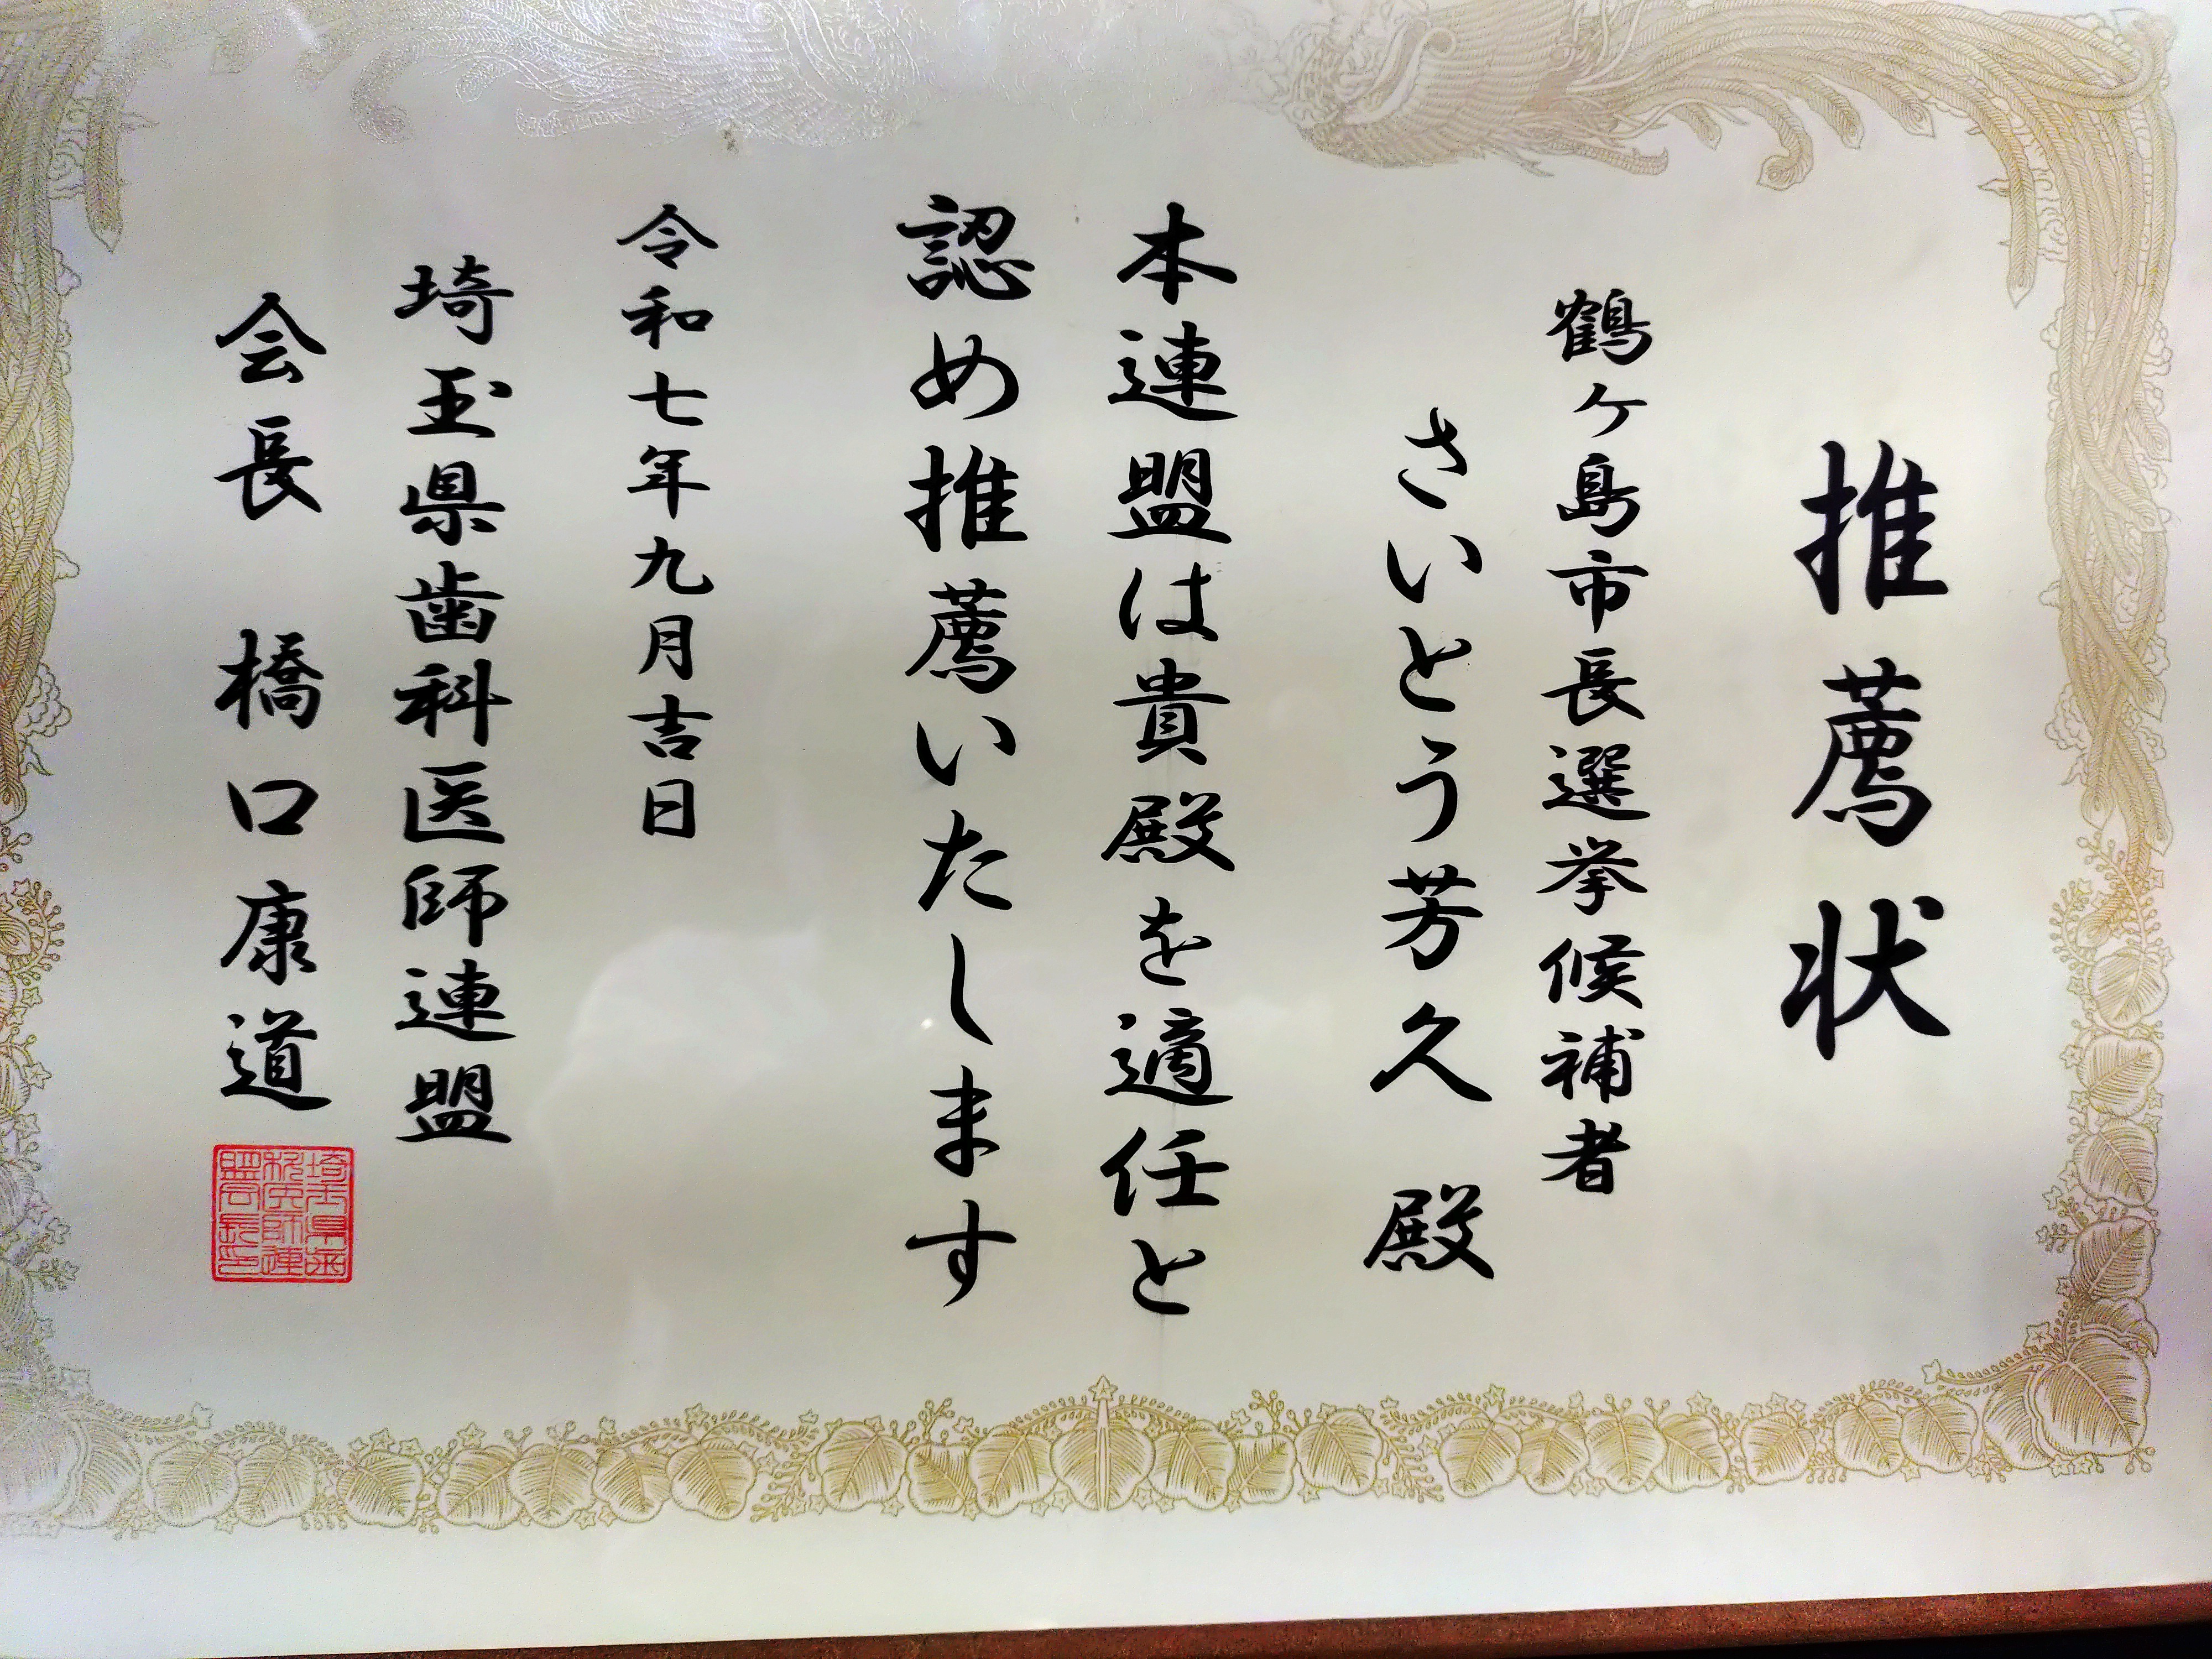 推薦状
鶴ヶ島市長選挙候補者
さいとう芳久 殿
本連盟は貴殿を適任と
認め推薦いたします
令和七年九月吉日
埼玉県歯科医師連盟
会長 橋口康道
埼玉県歯
科医師連
盟会長印